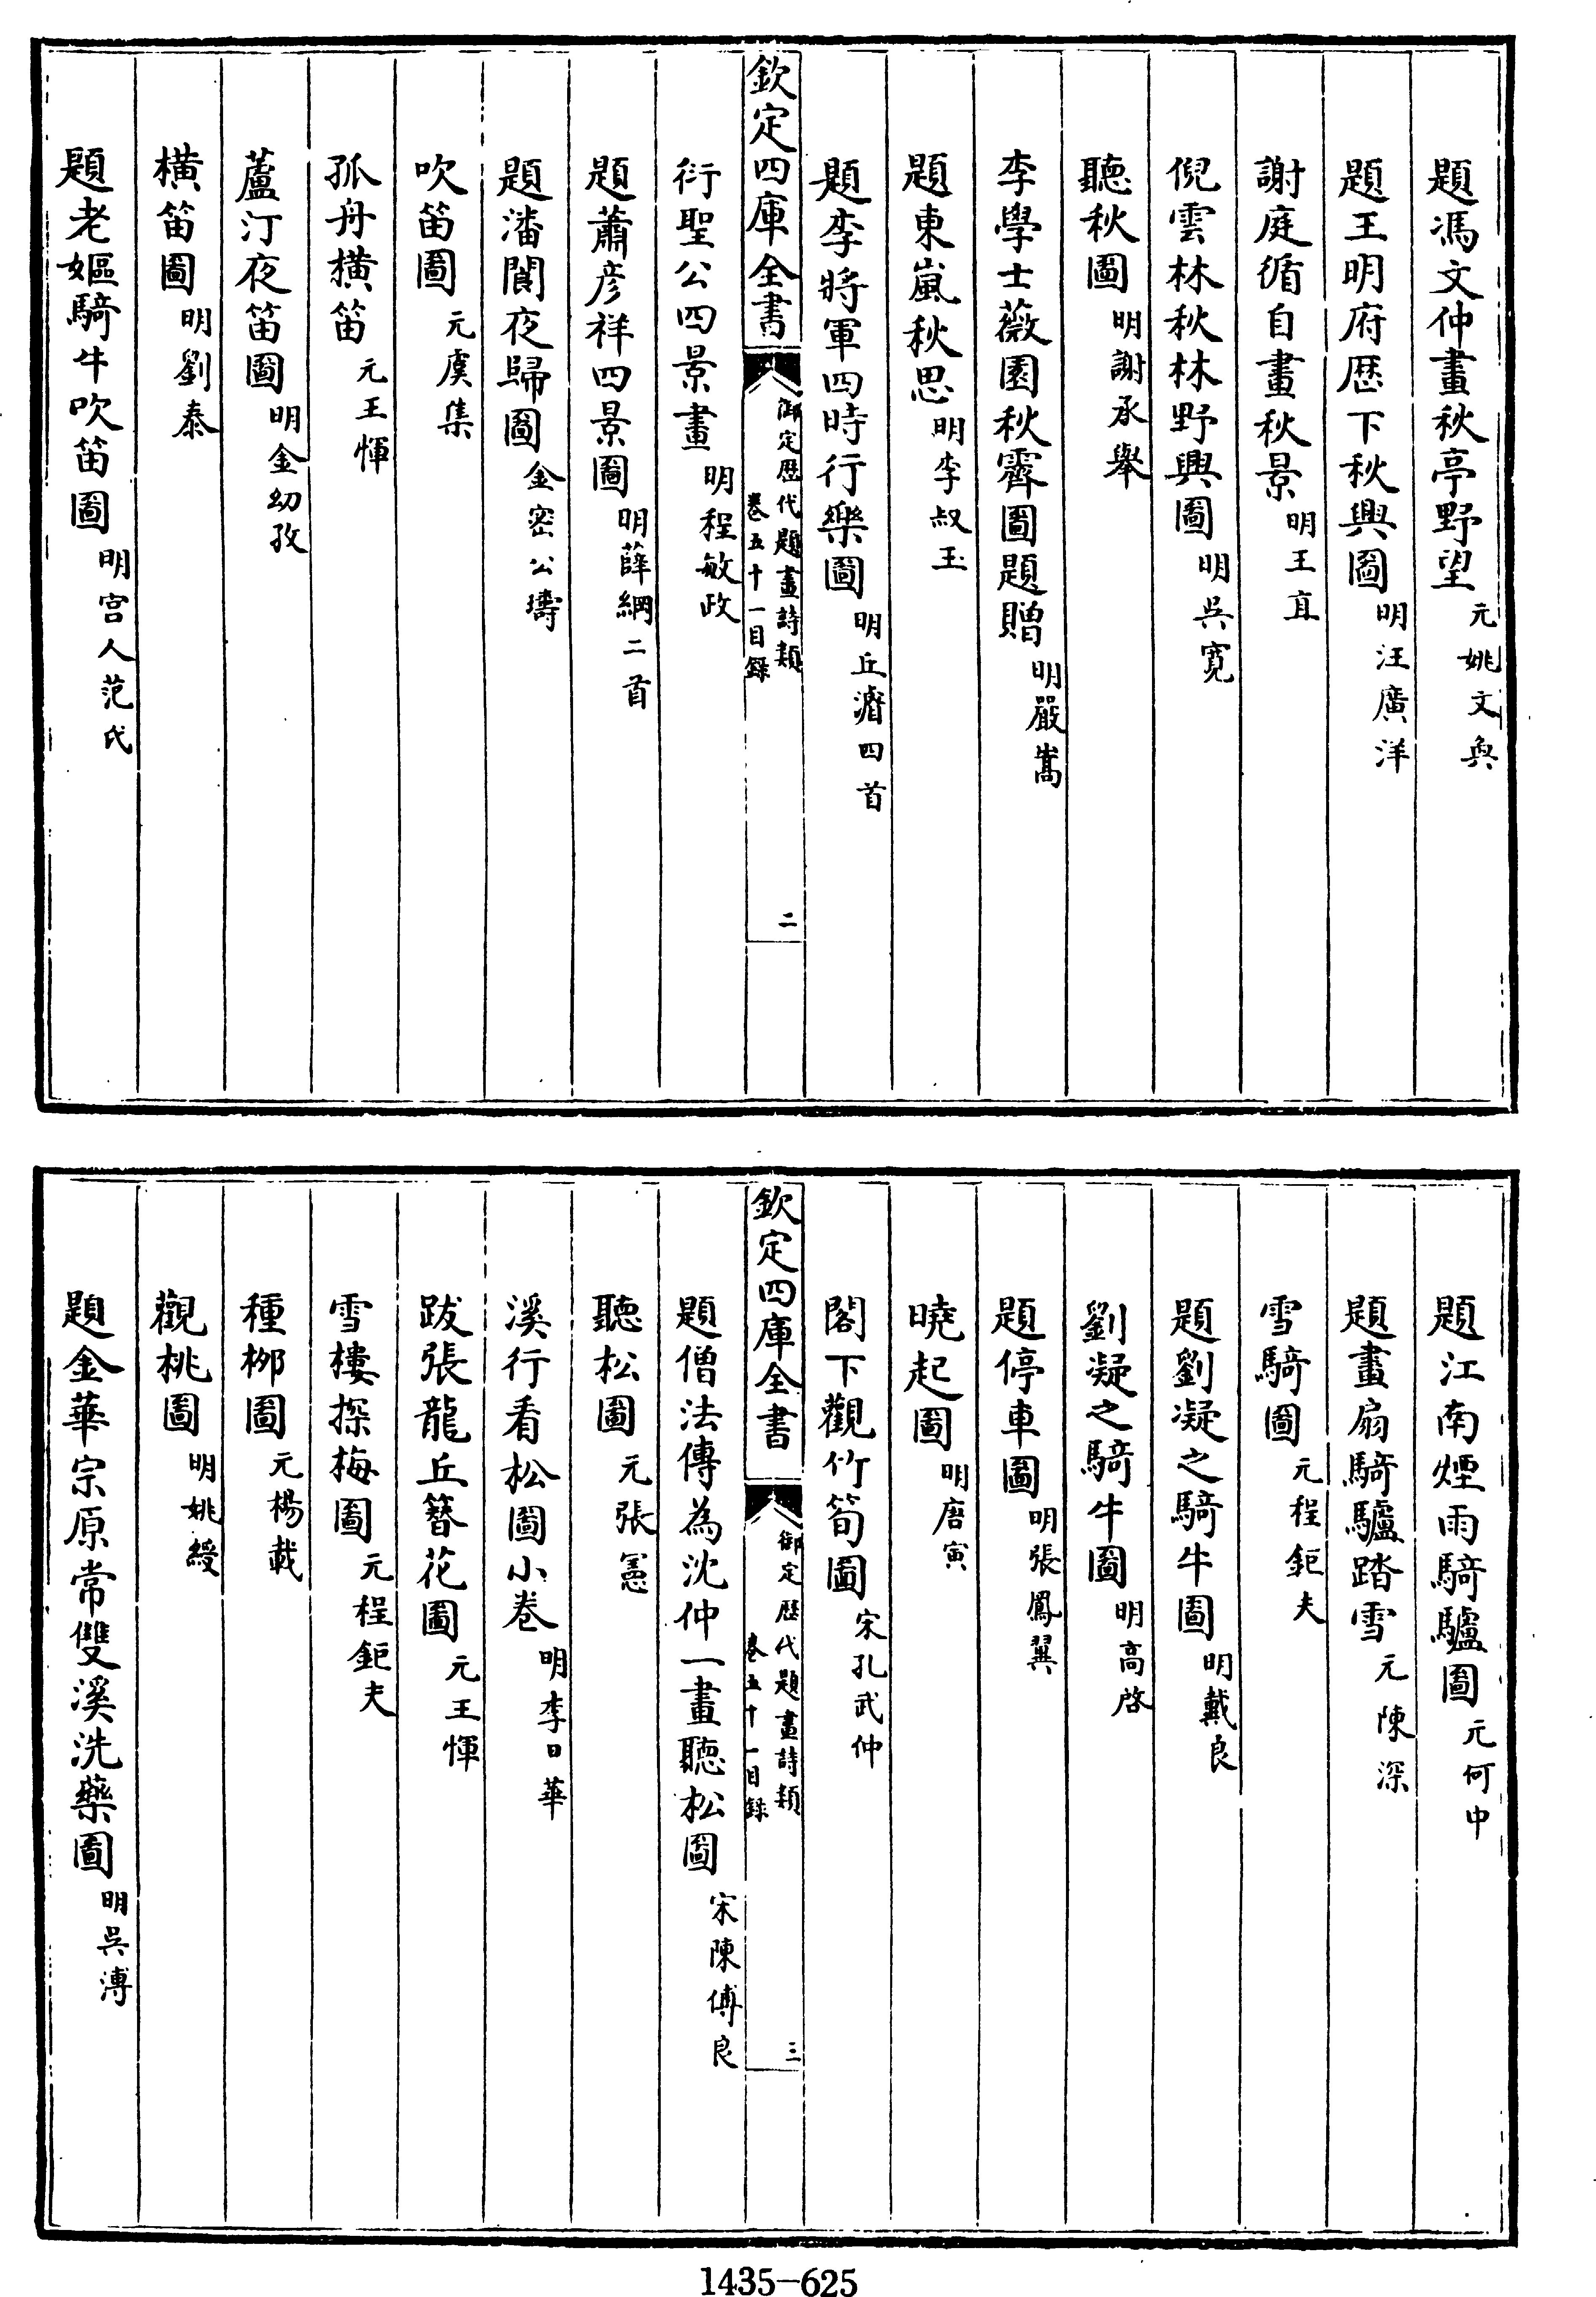 題馮文仲畫秋亭野望 元姚文奐
題王明府歴下秋興圖 明汪廣洋
謝庭循自畫秋景 明王直
倪雲林秋林野興圖 明吳寛
聽秋圖 明謝承舉
李學士薇園秋霽圖題贈 明嚴嵩
題東嵐秋思 明李叔玉
題李將軍四時行樂圖 明丘濬四首
欽定四庫全書
御定歴代題畫詩類
卷五十一目録
二
衍聖公四景畫 明程敏政
題蕭彦祥四景圖 明薛綱二首
題潘閬夜歸圖 金密公璹
吹笛圖 元虞集
孤舟橫笛 元王惲
蘆汀夜笛圖 明金幼孜
橫笛圖 明劉泰
題老嫗騎牛吹笛圖 明宫人范氏
題江南煙雨騎驢圖 元何中
題畫扇騎驢踏雪 元陳深
雪騎圖 元程鉅夫
題劉凝之騎牛圖 明戴良
劉凝之騎牛圖 明高啓
題停車圖 明張鳳翼
曉起圖 明唐寅
閣下觀竹筍圖 宋孔武仲
欽定四庫全書
御定歴代題畫詩類
卷五十一目録
三
題僧法傳為沈仲一畫聽松圖 宋陳傅良
聽松圖 元張憲
溪行看松圖小卷 明李日華
跋張龍丘簪花圖 元王惲
雪樓探梅圖 元程鉅夫
種栁圖 元楊載
觀桃圖 明姚綬
題金華宗原常雙溪洗藥圖 明吳溥
1435-625